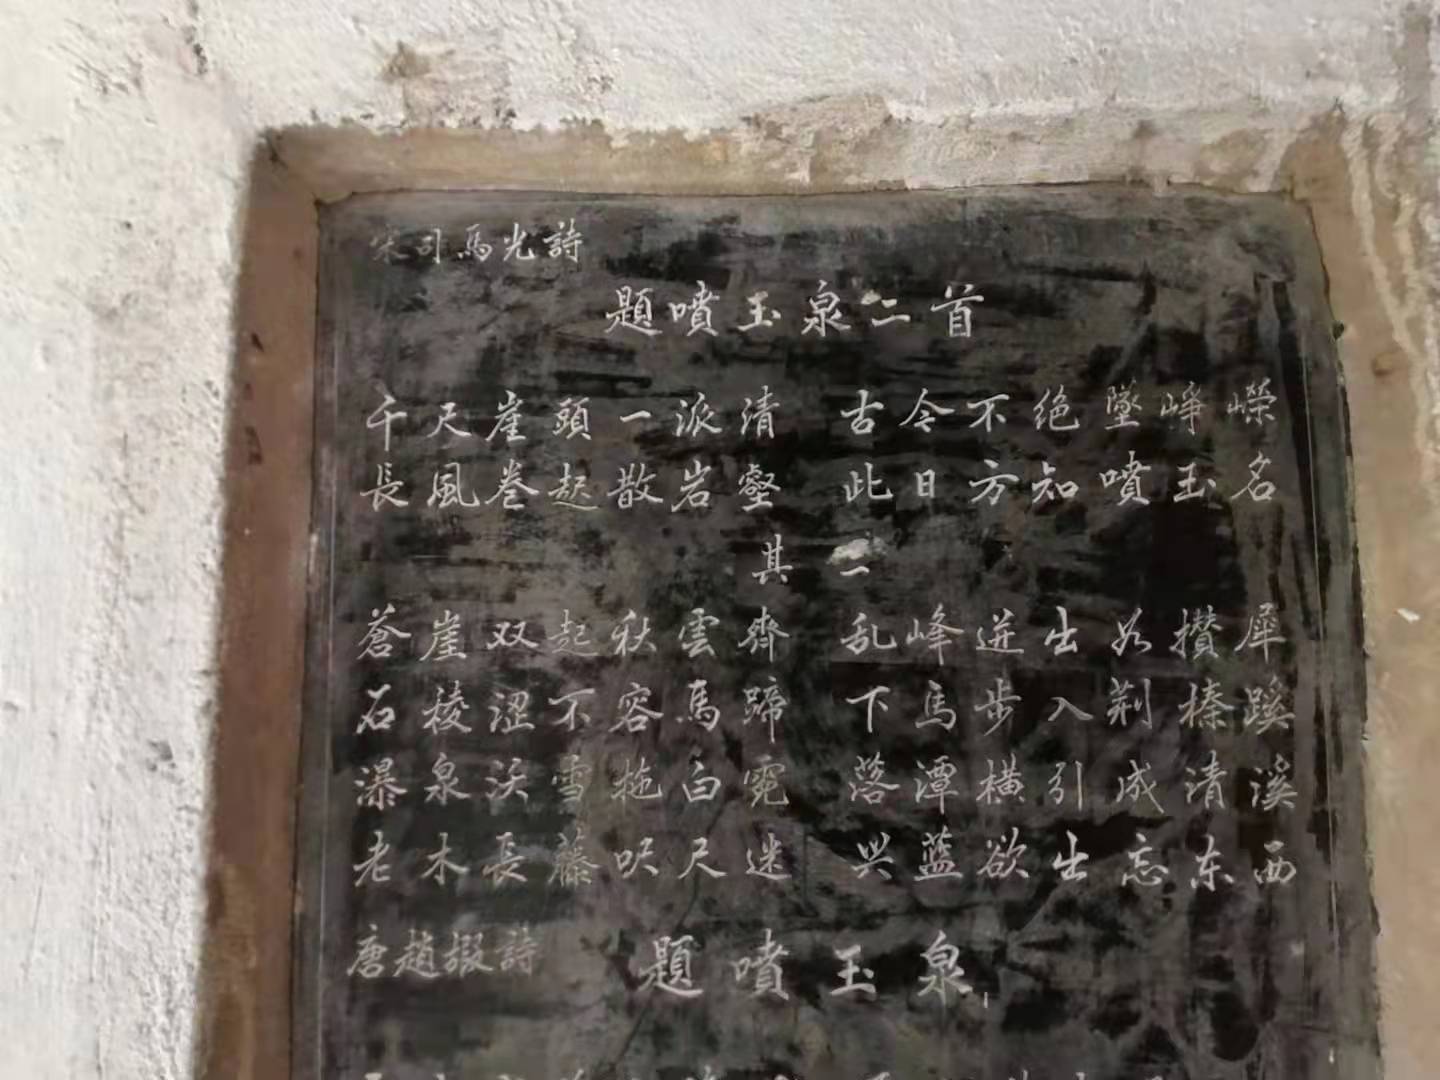 宋司馬光詩
題噴玉泉二首
千尺崖頭一派清 古今不绝墜崢嶸
長風卷起散岩壑 此日方知噴玉名
其二
蒼崖双起秋雲齊 乱峰迸出如攢犀
石稜涩不容馬蹄 下馬步入荆榛蹊
瀑泉沃雪拖白霓 落潭横引成清溪
老木長藤咫尺迷 兴蓝欲出忘东西
唐趙嘏詩
題噴玉泉